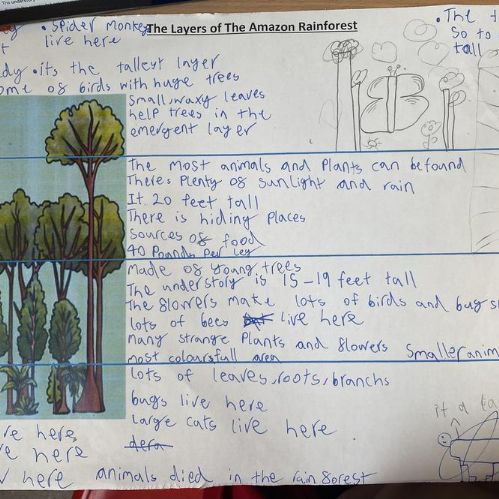 The Layers of The Amazon Rainforest
• spider monkey
live here
• The t
so to
tall
dy • its the tallest layer
ome of birds with huge trees
Small, waxy leaves
help trees in the
emergent layer
The most animals and Plants can be found
There's Plenty of sunlight and rain
It 20 feet tall
There is hiding Places
Sources of food
40 Pounds Per leg
Made of young trees
The understory is 15-19 feet tall
The flowers make lots of birds and bugs
lots of bees live here
many strange Plants and flowers smaller anim
most coloursfull area
lots of leaves, roots, branchs
bugs live here
Large cats live here
re here
ve here
here animals died in the rainforest
it a ta